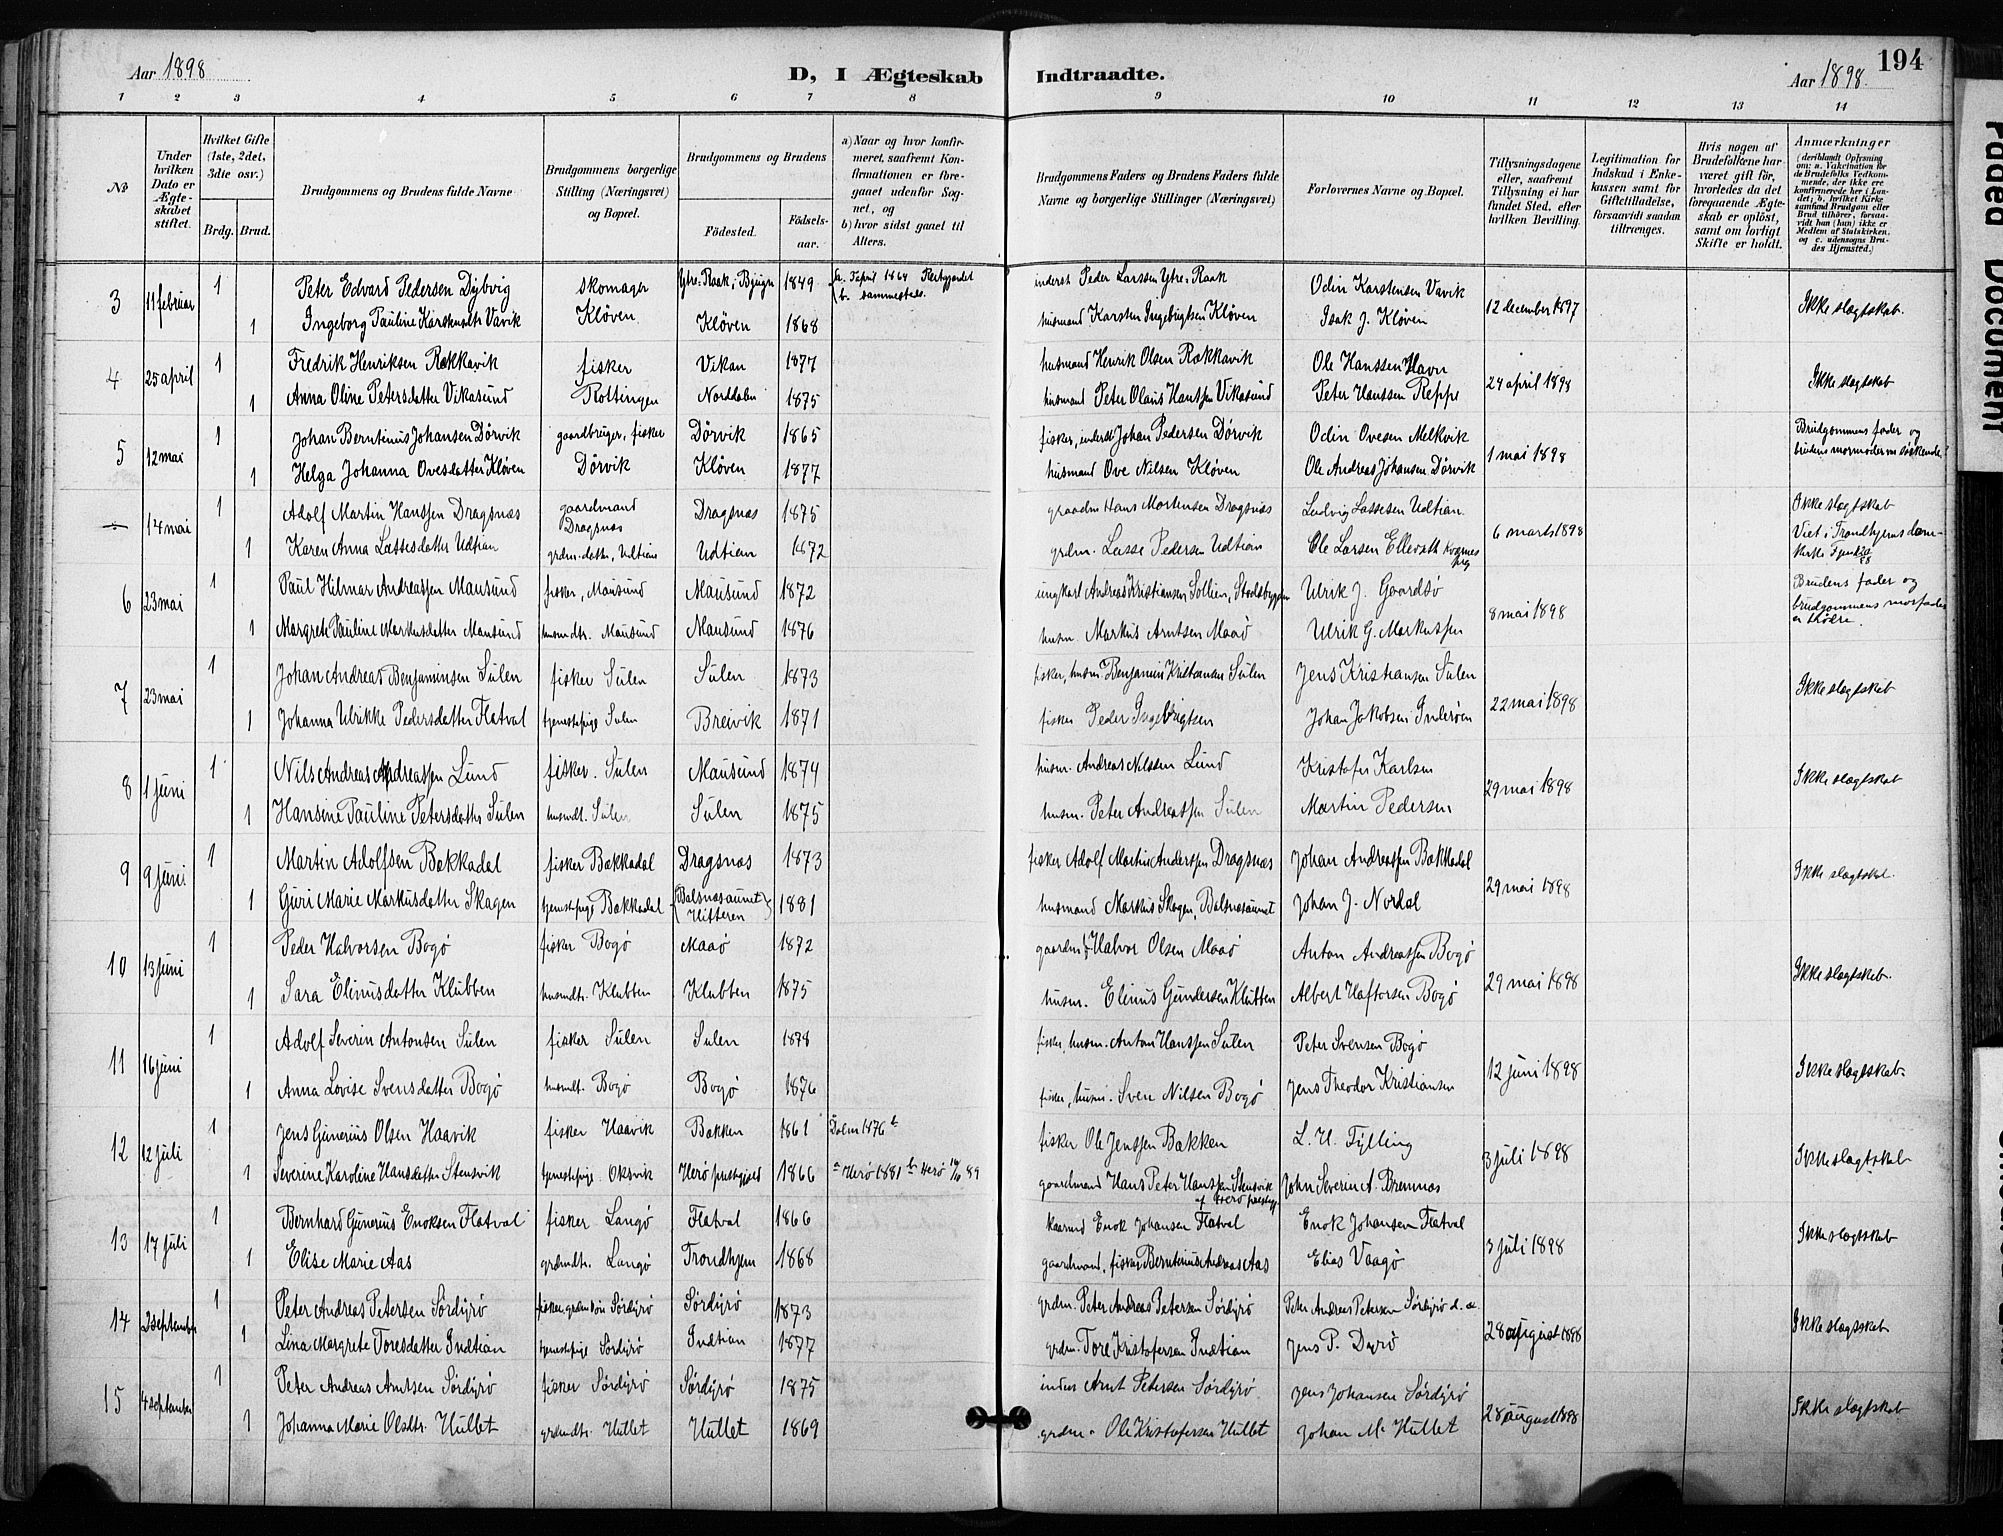 Aar 1898 D, I Ægteskab Indtraadte. Aar 1898. 194
1 2 3 4 5 6 7 8 9 10 11 12 13 14
No
Under hvilken Dato er Ægteskabet stiftet.
Hvilket Gifte (1ste, 2det, 3die osv.)
Brdg. Brud.
Brudgommens og Brudens fulde Navne
Brudgommens borgerlige Stilling (Næringsvei) og Bopæl.
Brudgommens og Brudens
Fødested. Fødselsaar.
a) Naar og hvor konfirmeret, saafremt Konfirmationen er foregaaet udenfor Sognet, og
b) hvor sidst gaaet til Alters.
Brudgommens Faders og Brudens Faders fulde Navne og borgerlige Stillinger (Næringsvei)
Forlovernes Navne og Bopæl.
Tillysningsdagene eller, saafremt Tillysning ei har fundet Sted, efter hvilken Bevilling.
Legitimation for Indskud i Enkekassen samt for Giftetilladelse, forsaavidt saadan tiltrænges.
Hvis nogen af Brudefolkene har været gift før, hvorledes da det foregaaende Ægteskab er opløst, samt om lovligt Skifte er holdt.
Anmærkninger (deriblandt Oplysning om: a. Vakcination for de Brudefolks Vedkommende, der ikke ere konfirmerede her i Landet; b. hvilket Kirkesamfund Brudgom eller Brud tilhører, forsaavidt han (hun) ikke er Medlem af Statskirken, og c. udensogns Brudes Hjemsted.)
3 11 februar 1 Peter Edvard Pedersen Dybvig skomager Ytre-Raak, Bjugn 1849 a. april 1864 b. sammesteds. inderst Peder Larssen Ytre-Raak Odin Karstensen Vavik 12 december 1897 Ikke slægtskab.
1 Ingeborg Pauline Karstensdtr Vavik Kløven Kløven 1868 husmand Karsten Ingebrigtsen Kløven Isak J. Kløven
4 25 april 1 Fredrik Henriksen Rækkavik fisker Vikan 1877 husmand Henrik Olsen Rækkavik Ole Hanssen Havn 24 april 1898 Ikke slægtskab
1 Anna Oline Petersdatter Vikasund Rottingen Norddalen 1875 husmand Peter Olaus Hanssen Vikasund Peter Hanssen Reppe
5 12 mai 1 Johan Berntinus Johansen Dørvik gaardbruger, fisker Dørvik 1865 fisker, inderst Johan Pedersen Dørvik Odin Ovesen Melkvik 1 mai 1898 Brudgommens fader og
1 Helga Johanna Ovesdatter Kløven Dørvik Kløven 1877 husmand Ove Nilsen Kløven Ole Andreas Johansen Dørvik brudens mormoder var søskende
÷ 14 mai 1 Adolf Martin Hanssen Dragsnæs gaardmand Dragsnæs Dragsnæs 1875 gaardm Hans Mortensen Dragsnæs Ludvig Lassesen Udtian 6 marts 1898 Ikke slægtskab
1 Karen Anna Lassesdatter Udtian grdm. datter, Udtian Udtian 1872 grdm. Lasse Pedersen Udtian Ole Larsen Viet i Trondhjems domkirke
6 23 mai 1 Paul Hilmar Andreassen Mausund fisker, Mausund Mausund 1872 ungkarl Andreas Kristiansen Sollien, Stadsbygden Ulrik J. Gaardsø 8 mai 1898 Brudens fader og
1 Margrete Pauline Markusdatter Mausund husmdtr. Mausund Mausund 1876 husm. Markus Arntsen Maaø Ulrik G. Markussen brudgommens morfader
7 23 mai 1 Johan Andreas Benjaminsen Sulen fisker Sulen Sulen 1873 fisker, husm. Benjamin Kristiansen Sulen Jens Kristiansen Sulen 22 mai 1898 Ikke slægtskab
1 Johanna Ulrikke Pedersdatter Flatval tjenestepige Sulen Breivik 1871 fisker Peder Ingebrigtsen Johan Jakobsen Inderøen
8 1 juni 1 Nils Andreas Andreassen Lund fisker. Sulen Mausund 1874 husm. Andreas Nilssen Lund Kristofer Karlsen 29 mai 1898 Ikke slægtskab
1 Hansine Pauline Petersdatter Sulen husmdt. Sulen Sulen 1875 husm. Peter Andreassen Sulen Martin Pedersen
9 9 juni 1 Martin Adolfsen Bækkadal fisker Bækkadal Dragsnæs 1873 fisker Adolf Martin Anderssen Dragsnæs Johan Andreassen Bækkadal 29 mai 1898 Ikke slægtskab.
1 Guri Marie Markusdatter Skagen tjenestepige Bækkadal (Balsnæsaunet Hitteren) 1881 husmand Markus Skagen, Balsnæsaunet Johan J. Nordal
10 13 juni 1 Peder Halvorsen Bogø fisker Bogø Maaø 1872 gaardm. Halvor Olsen Maaø Anton Andreassen Bogø 29 mai 1898 Ikke slægtskab.
1 Sara Elinusdatter Klubben husmdtr. Klubben Klubben 1875 husm. Elinus Gundersen Klubben Albert Haftorsen Bogø
11 16 juni 1 Adolf Severin Antonsen Sulen fisker Sulen Sulen 1878 fisker, husm. Anton Hanssen Sulen Peter Svensen Bogø 12 juni 1898 Ikke slægtskab.
1 Anna Lovise Svensdatter Bogø husmdt. Bogø Bogø 1876 fisker, husm. Sven Nilsen Bogø Jens Theodor Kristiansen
12 12 juli 1 Jens Gunerius Olsen Haavik fisker Haavik Bakken 1861 Dolm 1876 b fisker Ole Jenssen Bakken L. H. Fylling 3 juli 1898 Ikke slægtskab
1 Severine Karoline Hansdatter Stensvik tjenestepige. Oksvik Herø prestegjeld 1866 a Herø 1881 b Herø 89 gaardmand Hans Peter Hanssen Stensvik af Herø præstegj. John Severin A. Bremnæs
13 17 juli 1 Bernhard Gunerius Enoksen Flatval fisker Langø Flatval 1866 kaarmd Enok Johansen Flatval Enok Johansen Flatval 3 juli 1898 Ikke slægtskab
1 Elise Marie Aas grdmdtr. Langø Trondhjem 1868 gaardmand, fisker Berntinus Andreas Aas Elias Vaagø
14 2 september 1 Peter Andreas Petersen Sørdyrø fisker, grdm søn Sørdyrø Sørdyrø 1873 grdm. Peter Andreas Petersen Sørdyrø Peter Andreas Petersen Sørdyrø d. æ. 28 august 1898 Ikke slægtskab
1 Lina Margrete Toresdatter Indtian tjenestepige Sørdyrø Indtian 1877 grdm. Tore Kristofersen Indtian Jens P. Dyrø
15 4 september 1 Peter Andreas Arntsen Sørdyrø fisker Sørdyrø Sørdyrø 1875 inders Arnt Petersen Sørdyrø Jens Johansen Sørdyrø 28 august 1898 Ikke slægtskab
1 Johanna Marie Olsdtr. Hullet grdmdtr. Hullet Hullet 1869 grdm. Ole Kristofersen Hullet Johan M. Hullet
Faded Document